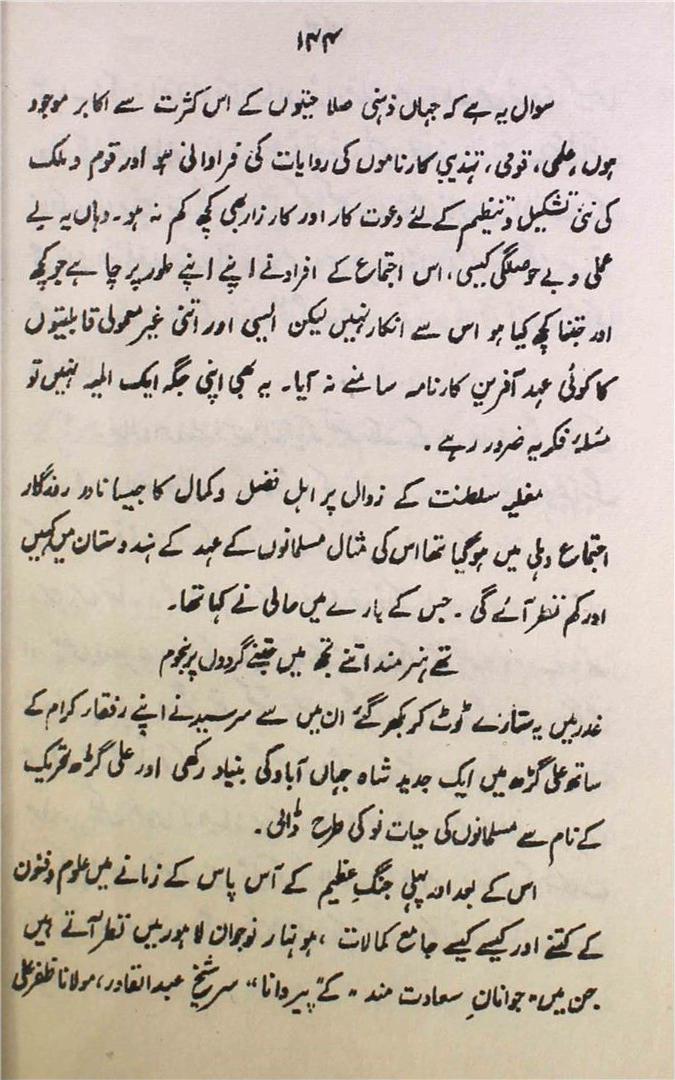 ۱۴۴
سوال یہ ہے کہ جہاں ذہنی صلاحیتوں کے اس کثرت سے اکابر موجود
ہوں، علمی، قومی، تہذیبی کارناموں کی روایات کی فراوانی ہو اور قوم و ملک
کی نئی تشکیل و تنظیم کے لئے دعوت کار اور کارزار بھی کچھ کم نہ ہو۔ وہاں یہ بے
عملی و بے حوصلگی کیسی، اس اجتماع کے افراد نے اپنے اپنے طور پر چاہے جو کچھ
اور جتنا کچھ کیا ہو اس سے انکار نہیں لیکن ایسی اور اتنی غیر معمولی قابلیتوں
کا کوئی عہد آفریں کارنامہ سامنے نہ آیا۔ یہ بھی اپنی جگہ ایک المیہ نہیں تو
مسئلۂ فکریہ ضرور رہے۔
مغلیہ سلطنت کے زوال پر اہل فضل و کمال کا جیسا نادر روزگار
اجتماع دہلی میں ہو گیا تھا اس کی مثال مسلمانوں کے عہد کے ہندوستان میں کہیں
اور کم نظر آئے گی۔ جس کے بارے میں حالی نے کہا تھا۔
تھے ہنر مند اتنے تجھ میں جتنے گردوں پر نجوم
غدر میں یہ ستارے ٹوٹ کر بکھر گئے ان میں سے سرسید نے اپنے رفقار کرام کے
ساتھ علی گڑھ میں ایک جدید شاہ جہاں آباد کی بنیاد رکھی اور علی گڑھ تحریک
کے نام سے مسلمانوں کی حیات نو کی طرح ڈالی۔
اس کے بعد اور پہلی جنگِ عظیم کے آس پاس کے زمانے میں علوم و فنون
کے کتنے اور کیسے کیسے جامع کمالات، ہونہار نوجوان لاہور میں نظر آتے ہیں
جن میں "جوانانِ سعادت مند" کے "پیر دانا" سر شیخ عبدالقادر، مولانا ظفر علی